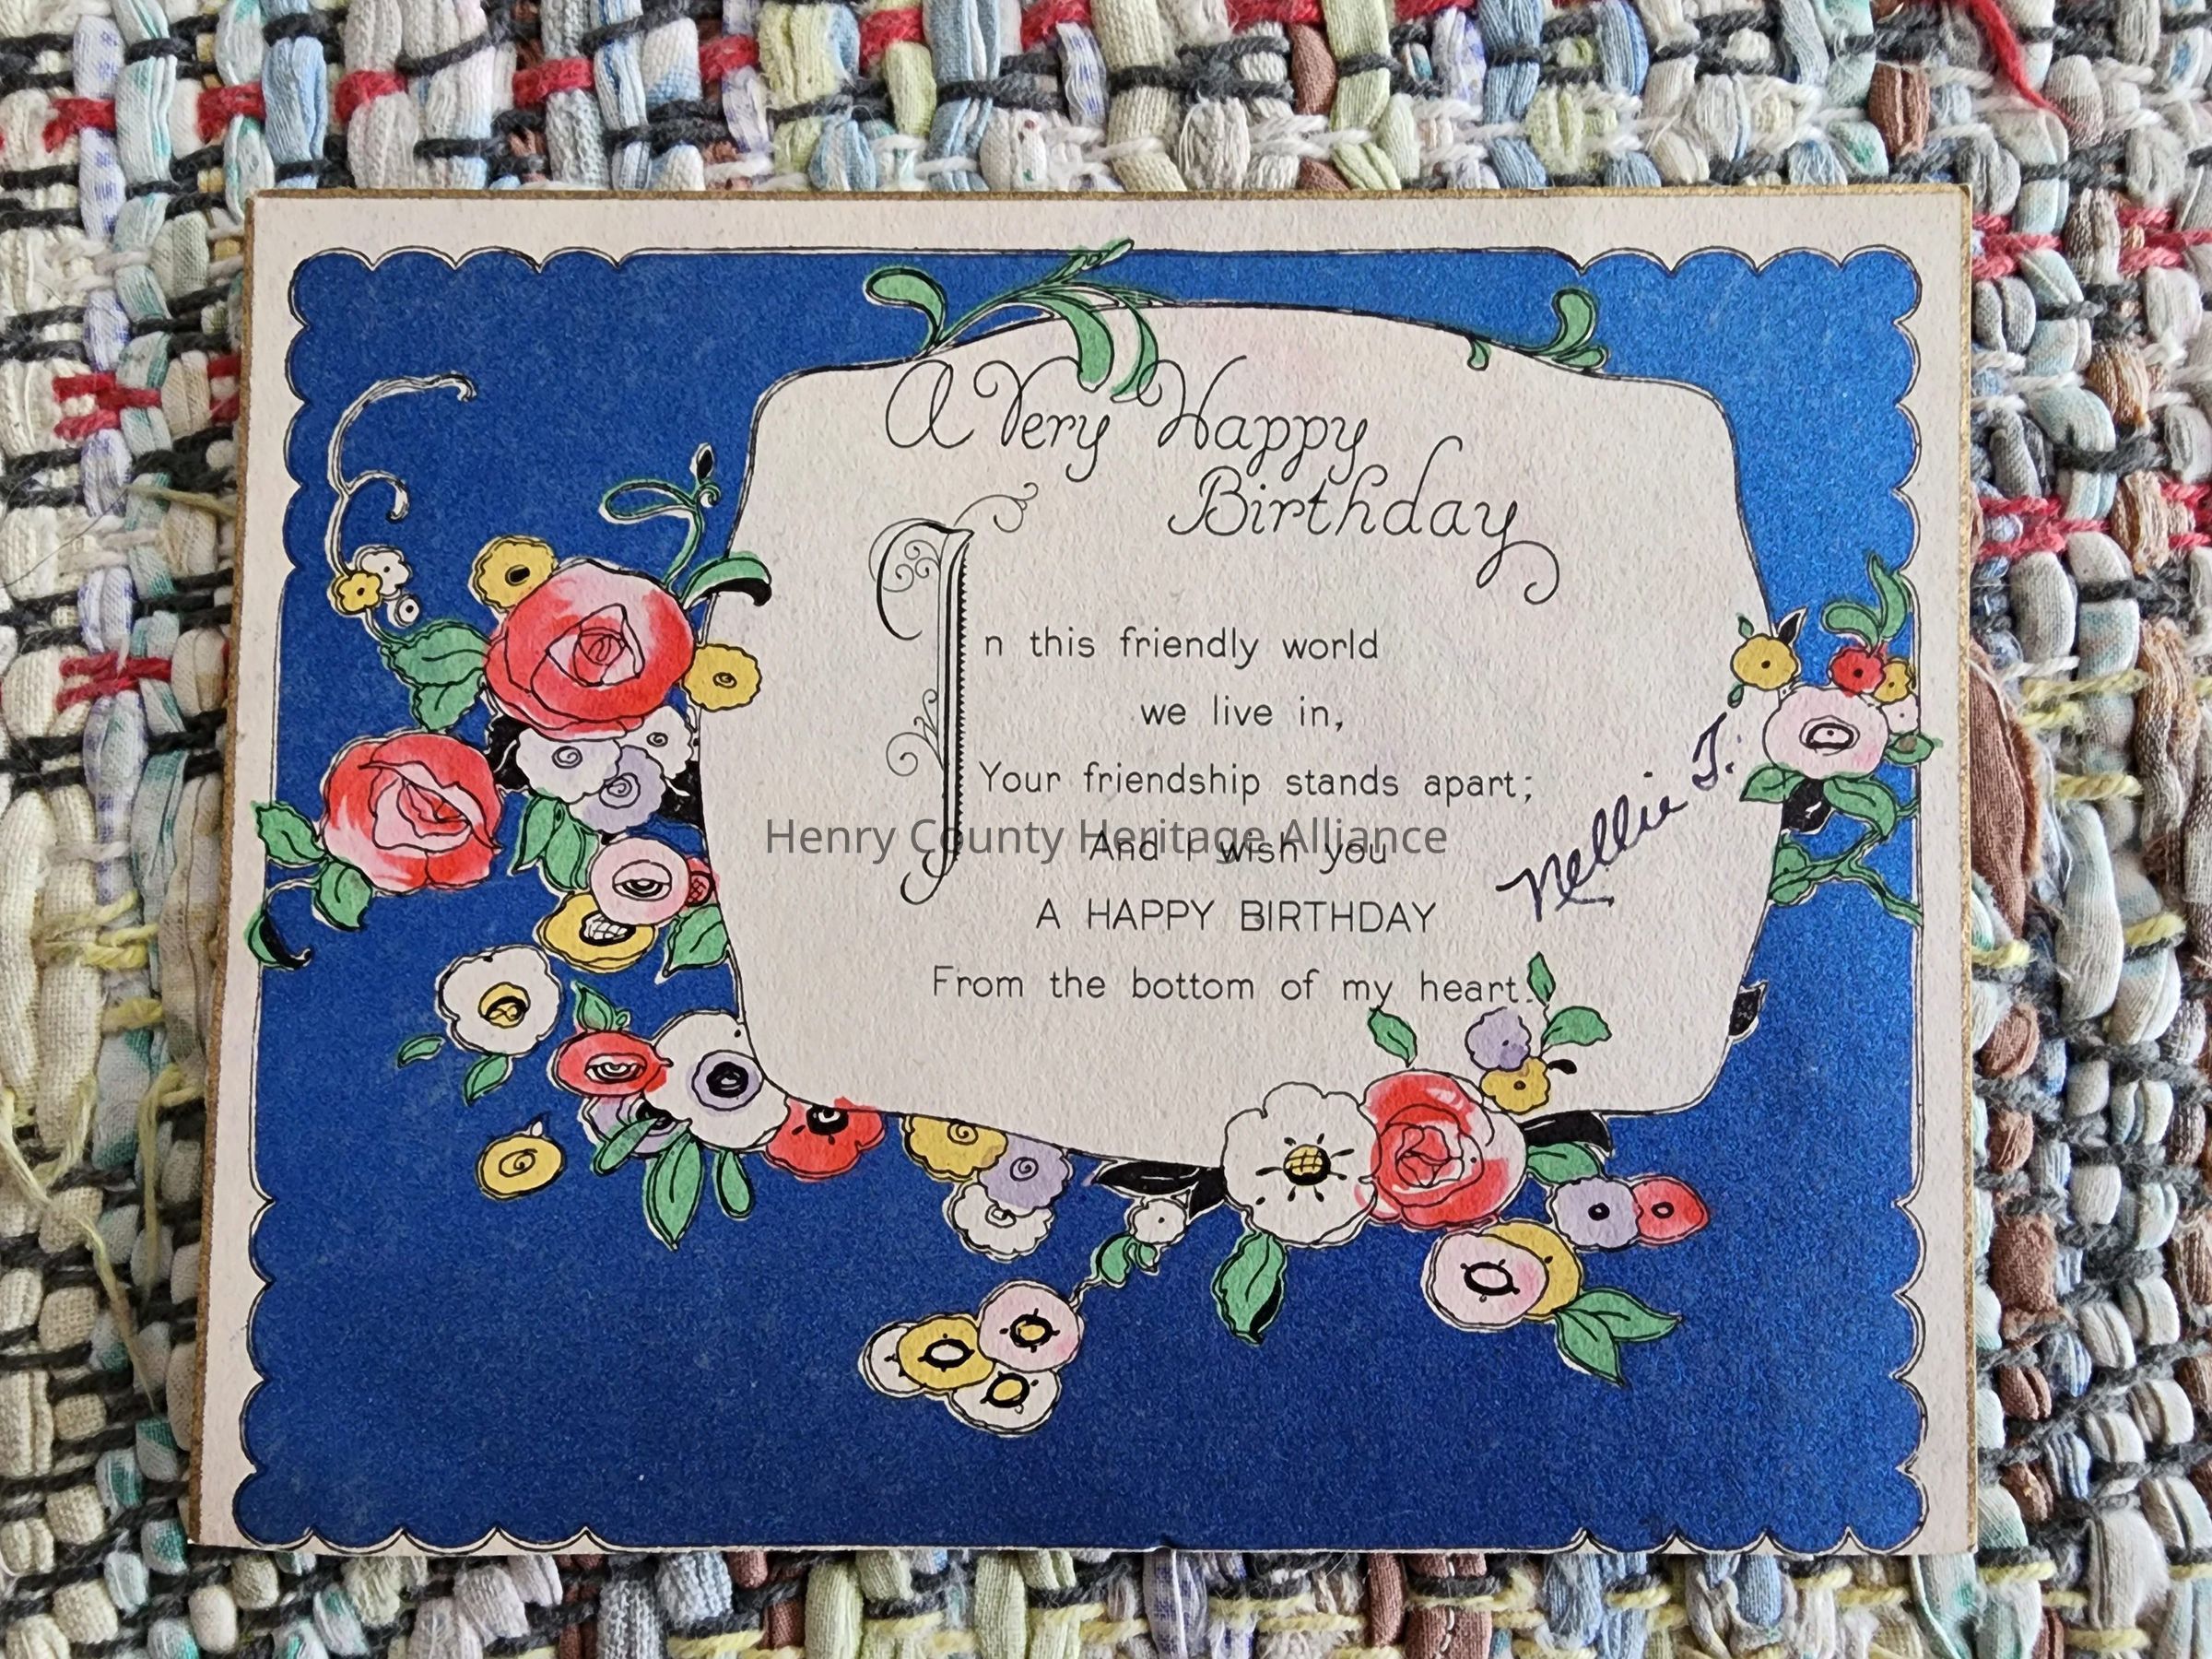 A Very Happy
Birthday
In this friendly world
we live in,
Your friendship stands apart;
And I wish you
A HAPPY BIRTHDAY
From the bottom of my heart.
Nellie T.
Henry County Heritage Alliance